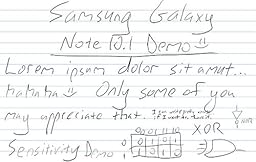 Samsung Galaxy
Note 10.1 Demo
Lorem ipsum dolor sit amut...
hahaha Only some of you
may appreciate that.
XOR
Sensitivity Demo